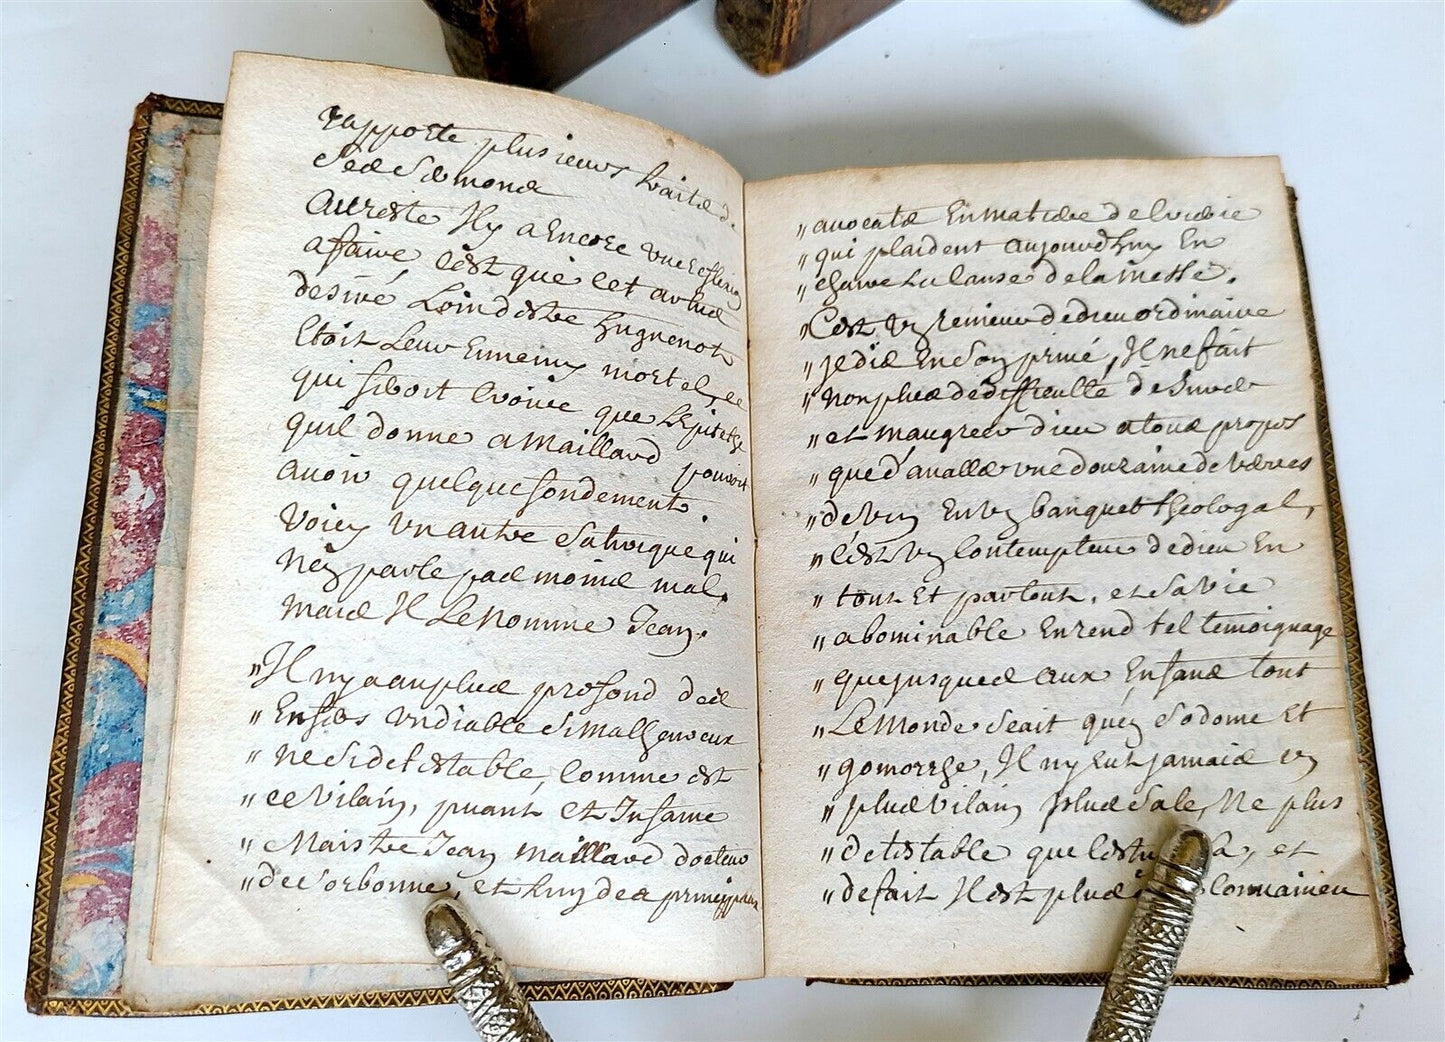 rapporte plusieurs traits de
ses sermons
Aureste Il y a Encore une reflexion
afaire c'est que cet autheur
desiré Loin destre hugenot
Etoit Leur Ennemy mortel, ce
qui feroit croire que Lepitethe
quil donne a Maillard pouvoit
auoir quelque fondement.
Voicy un autre satirique qui
n'en parle pas moins mal.
mais Il Le nomme Jean.
„ Il ny a au plus profond des
„ Enfers un diable si malheureux
„ ne si detestable, Comme est
„ ce vilain, puant et Infame
„ Maistre Jean Maillard docteur
„ de sorbonne, et lun des principaux
„ auocats En matiere de
„ qui plaident aujourdhuy En
„ la Cause de la messe.
„ C'est un renieur de dieu ordinaire
„ Je dis En son privé, Il ne fait
„ non plus de difficulté de
„ et maugreer dieu a tous propos
„ que d'aualler une douzaine de verres
„ de vin En un banquet theologal,
„ C'est un Contempteur de dieu En
„ tout Et partout, et sa vie
„ abominable En rend tel temoignage
„ que jusques aux Enfans tout
„ Le Monde scait qu'en sodome Et
„ gomorrhe, Il ny eut jamais un
„ plus vilain plus sale, Ne plus
„ detestable que Cestuy la, et
„ de fait Il est plus Conuaincu